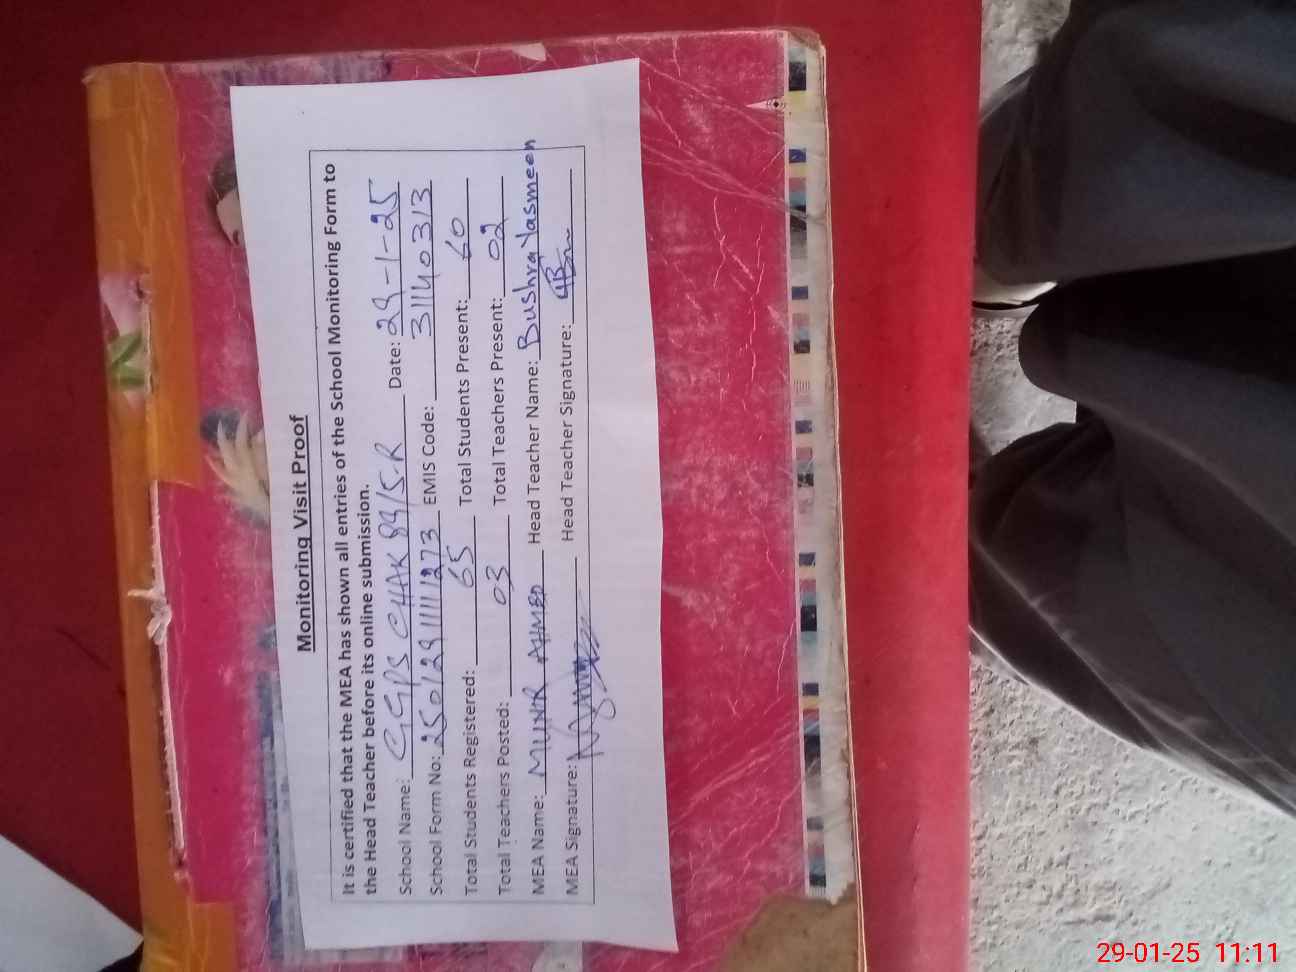 Monitoring Visit Proof
It is certified that the MEA has shown all entries of the School Monitoring Form to
the Head Teacher before its online submission.
School Name: GGPS CHAK 89/5-R Date: 29-1-25
School Form No: 250129111111273 EMIS Code: 31140313
Total Students Registered: 65 Total Students Present: 60
Total Teachers Posted: 03 Total Teachers Present: 02
MEA Name: MUNIR AHMED Head Teacher Name: Bushra Yasmeen
MEA Signature: Head Teacher Signature:
29-01-25 11:11